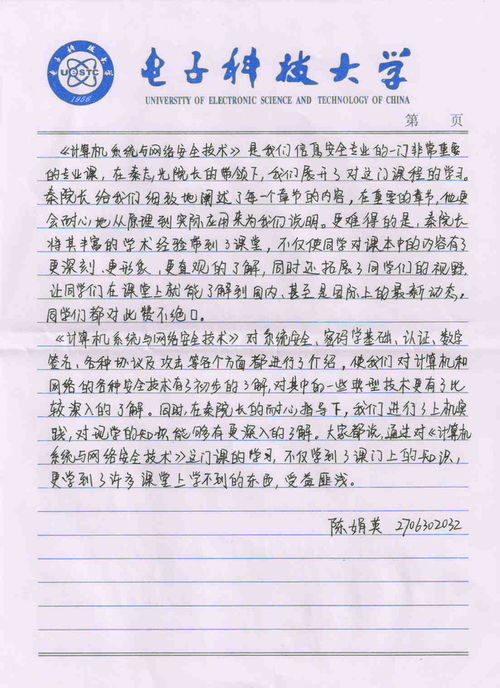 电子科技大学
UOSTC
1956
电子科技大学
UNIVERSTTY OF ELECTRONIC SCIENCE AND TECHNOLOGY OF CHINA
第 页
《计算机系统与网络安全技术》是我们信息安全专业的一门非常重要
的专业课,在秦志光院长的带领下,我们展开了对这门课程的学习。
秦院长给我们细致地阐述了每一个章节的内容,在重要的章节,他更
会耐心地从原理到实际应用来为我们说明。更难得的是,秦院长
将其丰富的学术经验带到了课堂,不仅使同学对课本中的内容有了
更深刻、更形象、更直观的了解,同时还拓展了同学们的视野,
让同学们在课堂上就能了解到国内、甚至是国际上的最新动态,
同学们都对此赞不绝口。
《计算机系统与网络安全技术》对系统安全、密码学基础、认证、数字
签名、各种协议及攻击等各个方面都进行了介绍,使我们对计算机和
网络的各种安全技术有了初步的了解,对其中的一些典型技术更有了比
较深入的了解。同时,在秦院长的耐心指导下,我们进行了上机实
践,对现学的知识能够有更深入的了解。大家都说,通过对《计算机
系统与网络安全技术》这门课的学习,不仅学到了课门上的知识,
更学到了许多课堂上学不到的东西,受益匪浅。
陈娟英 2706302032